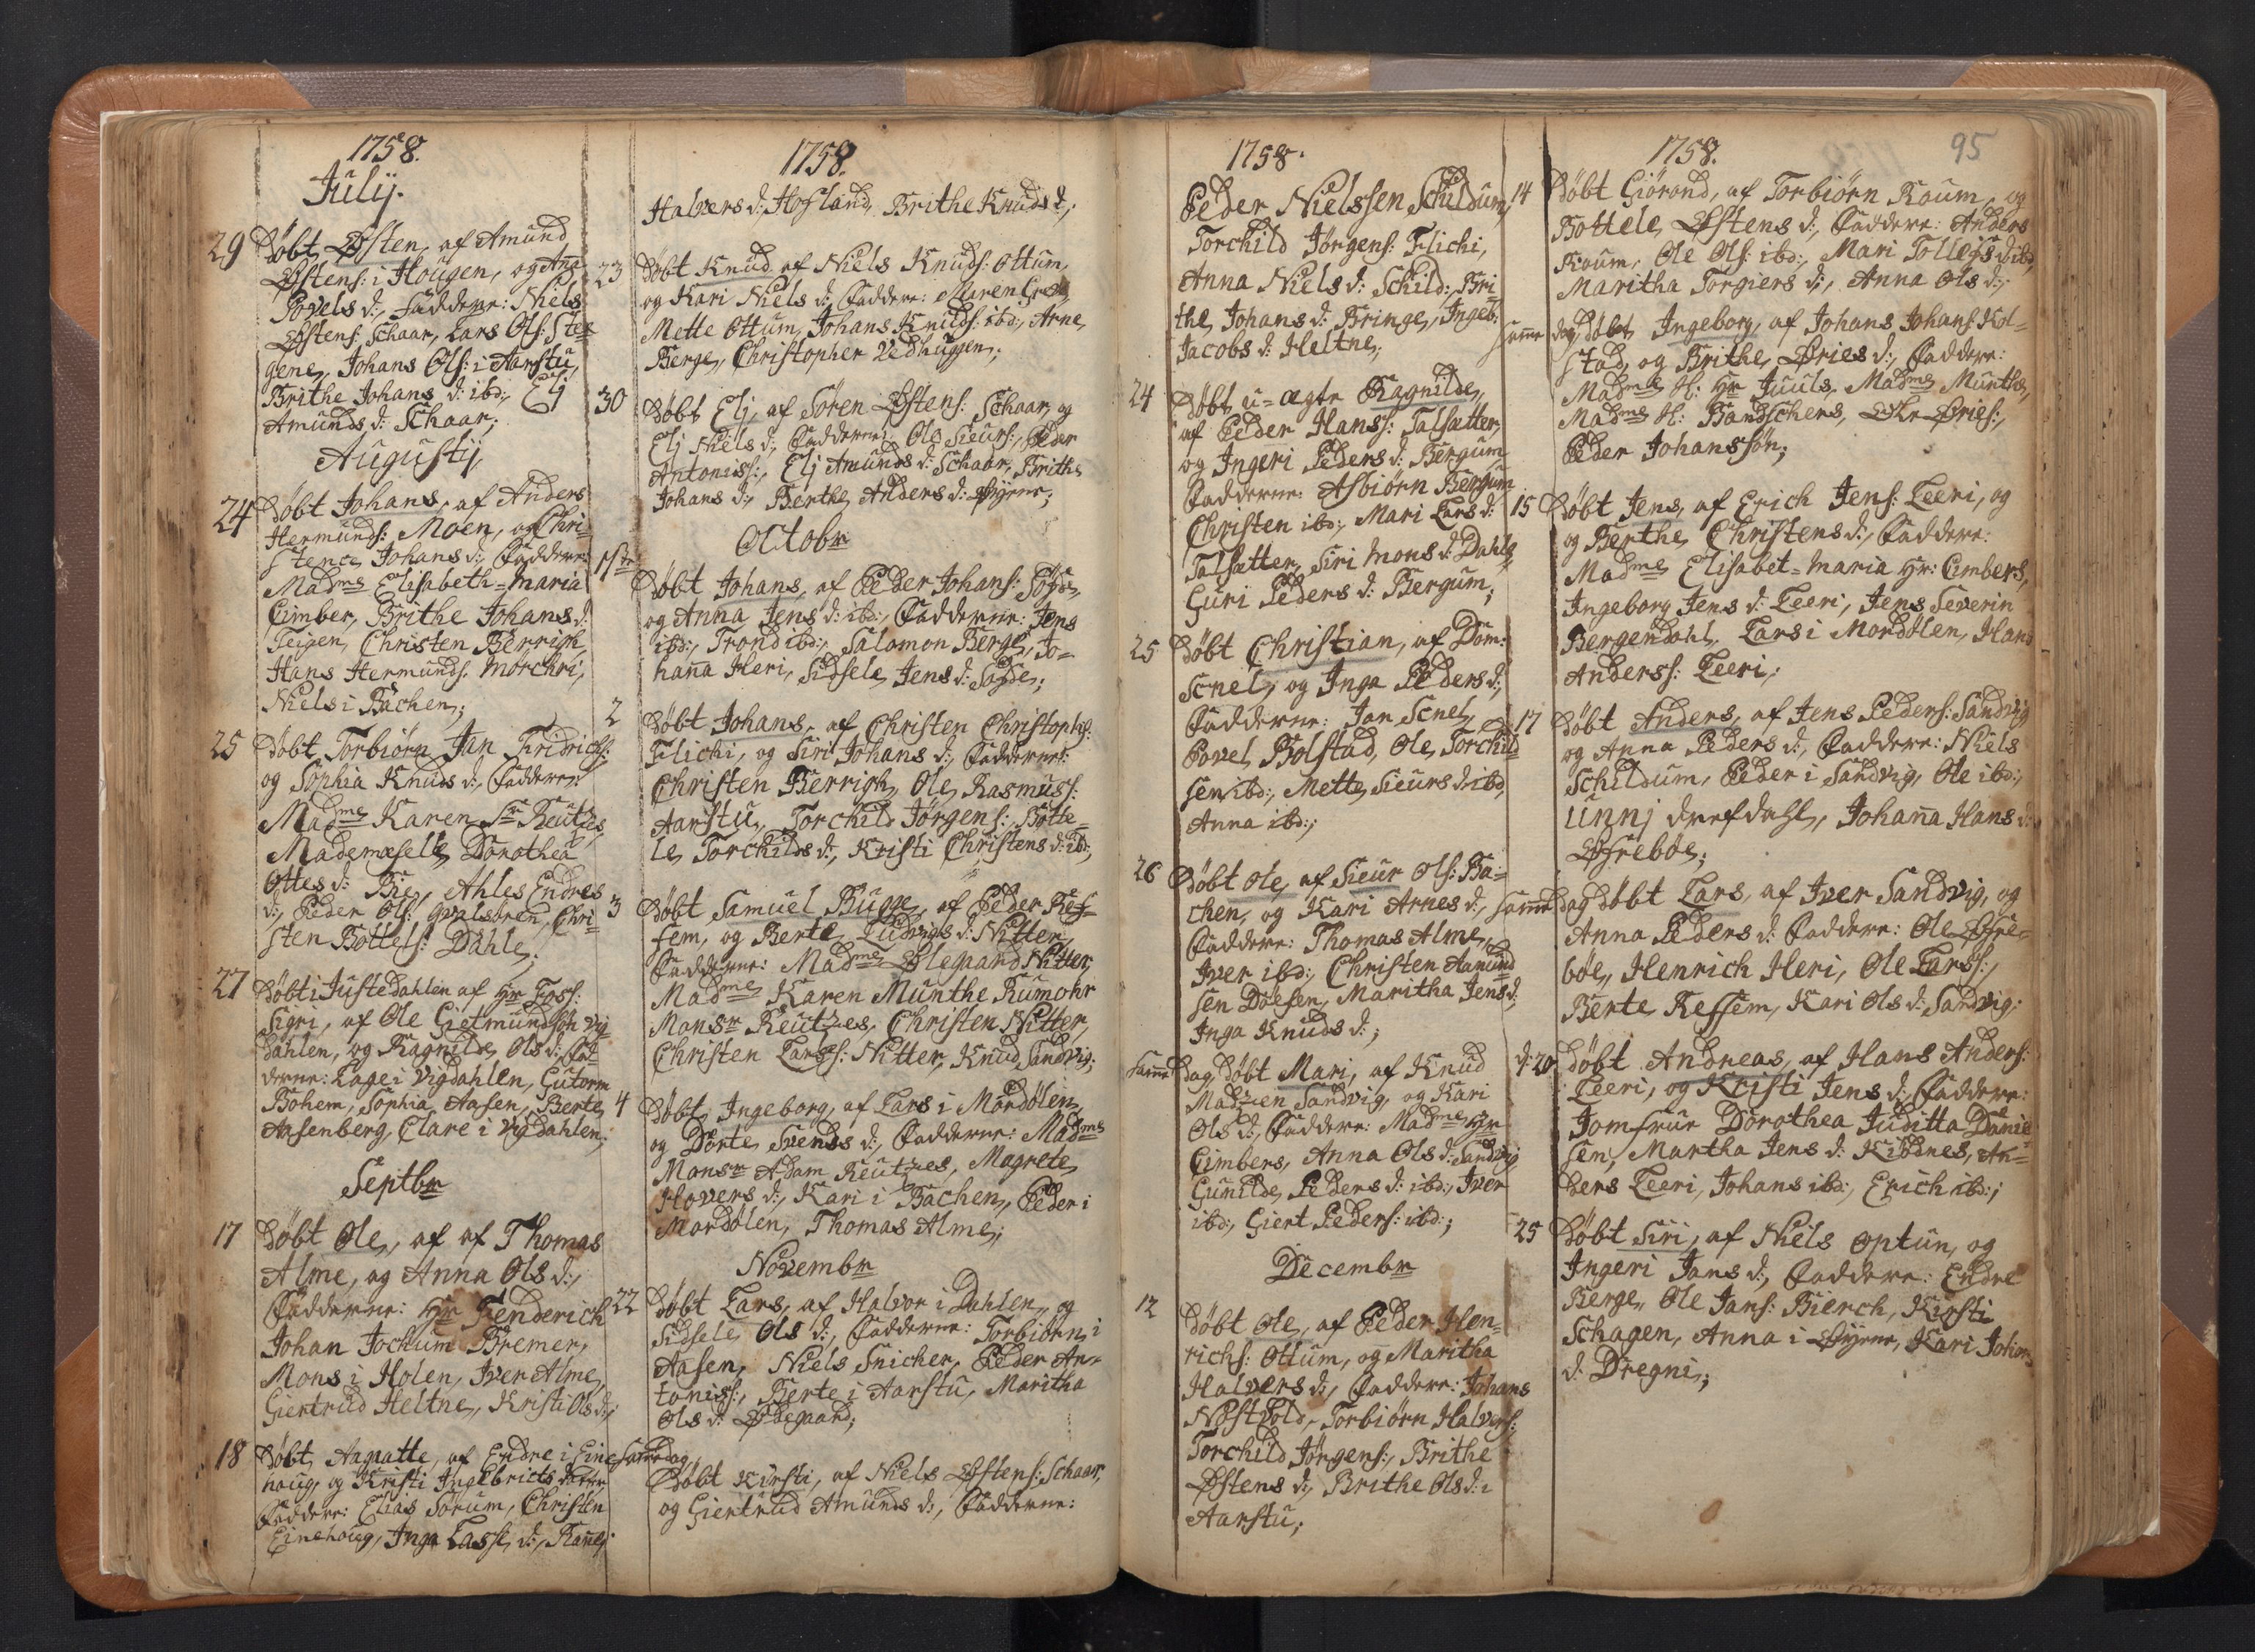 1758.
Julij.
29 Døbt Østen, af Amund
Østens: i Hougen, og Aña
Povels d:, Faddere: Niels
Østens: Schaar, Lars Ols: Ste=
gene, Johans Ols: i Aarstu,
Brithe Johans d: ibd:, Elj
Amunds d: Schaar;
Augustij
24 Døbt Johans, af Anders
Hermunds: Moen, og Chri=
stence Johans d:, Faddere:
Madme Elisabeth=Maria
Cimber, Brithe Johans d:
Teigen, Christen Berrigh,
Hans Hermunds. Morchri,
Niels i Bachen;
25 Døbt Torbiørn Jan Fridrichs:
og Sophia Knuds d:, Faddere:
Madme Karen Sr Reutzes,
Mademoselle Dorothea
Ottes d: Bie, Ahles Endres
d:, Peder Ols: Qvalsøren, Chri=
sten Bottels: Dahle;
27 Døbt i Justedahlen af Hr Foss:
Sigri, af Ole Gietmundson Vig
dahlen, og Ragnilde Ols d: Fad=
derne: Lage i Vigdahlen, Gutorm
Bohem, Sophia Aasen, Berte
Aasenberg, Clare i Vigdahlen;
Septbr
17 Døbt Ole, af af Thomas
Alme, og Anna Ols d:,
Fadderne: Hr Fenderich
Johan Jochum Bremer,
Mons i Holen, Iver Alme,
Giertrud Heltne, Kristi Ols d:;
18 Døbt Aagaatte, af Endre i Eine
houg, og Kristi Ingebricts d:
Faddere: Elias Sørum, Christen
Einehoug, Inga Lasse d:,
1758.
Halvers d: Hofland, Brithe Knuds d;
23 Døbt Knud af Niels Knuds: Ottum,
og Kari Niels d: Faddere: Maren
Mette Ottum, Johans Knuds: ibd:, Arne
Berge, Christopher Vedhuggen;
30 Døbt Elj, af Søren Østens: Schaar, og
Elj Niels d:, Fadderne: Ole Sieurs:, Peder
Antoniss:, Elj Amunds d: Schaar, Brithe
Johans d:, Berthe Anders d: Øÿrene;
Octobr
1ste Døbt Johans, af Peder Johans: Søgde,
og Anna Jens d: ibd:, Fadderne: Jens
ibd:, Trond ibd:, Salomon Berge, Jo=
hana Heri, Sidsele Jens d: Søgde;
2 Døbt Johans, af Christen Christophs:
Flichi, og Siri Johans d:, Fadderne:
Christen Berrigh, Ole Rasmuss:
Aarstu, Torchild Jørgens:, Botte=
le Torchilds d:, Kristi Christens d: ibd:,
3 Døbt Samuel Bugge, af Peder Ref=
sem, og Berte Ludvigs d: Nitter,
Fadderne: Madme Ølegaard Nitter,
Madme Karen Munthe Rumohr
Monsr Reutzes, Christen Nitter,
Christen Larss: Nitter, Knud Sandvig;
4 Døbt Ingeborg, af Lars i Mordølen,
og Dorte Svends d:, Fadderne: Madme
Monsr Adam Reutzes, Magrete
Havers d:, Kari i Bachen, Peder i
Mordølen, Thomas Alme;
Novembr
22 Døbt Lars, af Halvor i Dahlen, og
Sidsele Ols d:, Fadderne: Torbiørn i
Aasen, Niels Snicher, Peder An=
toniss:, Berte i Aarstu, Maritha
Ols d: Ødegaard;
Same dag
Døbt Kirsti, af Niels Østens: Schaar,
og Giertrud Amunds d:, Fadderne:
1758.
Peder Nielssen Schildum,
Torchild Jørgens: Flichi,
Anna Niels d: Schild:, Bri
the Johans d: Bringe, Ingeb:
Jacobs d: Heltne;
24 Døbt u=ægte Ragnilde,
af Peder Hanss: Talsætter,
og Ingeri Peders d: Bergum,
Fadderne: Asbiørn Bergum
Christen ibd:, Mari Lars d:
Talsætter, Siri Mons d: Dahle
Guri Peders d: Bergum;
25 Døbt Christian, af Dom:
Scnel, og Inga Peders d:,
Fadderne: Jan Scnel,
Povel Bolstad, Ole Torchild
sen ibd:, Mette Sieurs d: ibd,
Anna ibd:;
26 Døbt Ole, af Sieur Ols: Ba=
chen, og Kari Arnes d:,
Faddere: Thomas Alme,
Iver ibd:, Christen Aamund
sen Døesen, Maritha Jens d:
Inga Knuds d:;
Same dag Døbt Mari, af Knud
Madtzen Sandvig, og Kari
Ols d:, Faddere: Madme Hr
Cimbers, Anna Ols d: Sandvig
Gunilde Peders d: ibd:, Iver
ibd:, Giert Peders: ibd:;
Decembr
12 Døbt Ole, af Peder Hen=
richs: Ottum, og Maritha
Halvers d:, Faddere: Johans
Nestvold, Torbiørn Halvers:
Torchild Jørgens:, Brithe
Østens d:, Brithe Ols d: i
Aarstu;
95
1758.
14 Døbt Giørond, af Torbiørn Roum, og
Bottele Østens d:, Faddere: Anders
Roum, Ole Ols: ibd:, Mari Tollegs d: ibd,
Maritha Torgiers d:, Anna Ols d:;
Same dag døbt Ingeborg, af Johans Johans: Kol=
stad, og Brithe Øries d:, Faddere:
Madme H: Hr Juuls, Madme Munthe,
Madme H: Bandschers, Ole Øries:,
Peder Johanssøn;
15 Døbt Jens, af Erich Jens: Leeri, og
og Berthe Christens d:, Faddere:
Madme Elisabet=Maria Hr: Cimbers,
Ingeborg Jens d: Leeri, Jens Severin
Bergendahl, Lars i Mordølen, Hans
Anderss: Leeri;
17 Døbt Anders, af Jens Peders: Sandvig
og Anna Peders d:, Faddere: Niels
Schildum, Peder i Sandvig, Ole ibd:,
Unnj drefdahl, Johana Hans d:
Øfrebøe;
Same dag døbt Lars, af Iver Sandvig, og
Anna Peders d: Faddere: Ole Øfre=
bøe, Henrich Heri, Ole Larss:,
Berte Reffem, Kari Ols d: Sandvig;
d: 20 Døbt Andreas, af Hans Anders:
Leeri, og Kristi Jens d:, Faddere:
Jomfrue Dorothea Juditta Danie
sen, Martha Jens d: Kiddnes, An=
ders Leeri, Johans ibd:, Erich ibd:;
25 Døbt Siri, af Niels Optun, og
Ingeri Jans d:, Faddere: Endre
Berge, Ole Jans: Bierch, Kirsti
Schagen, Anna i Øÿrene, Kari Johans
d: Dregni;